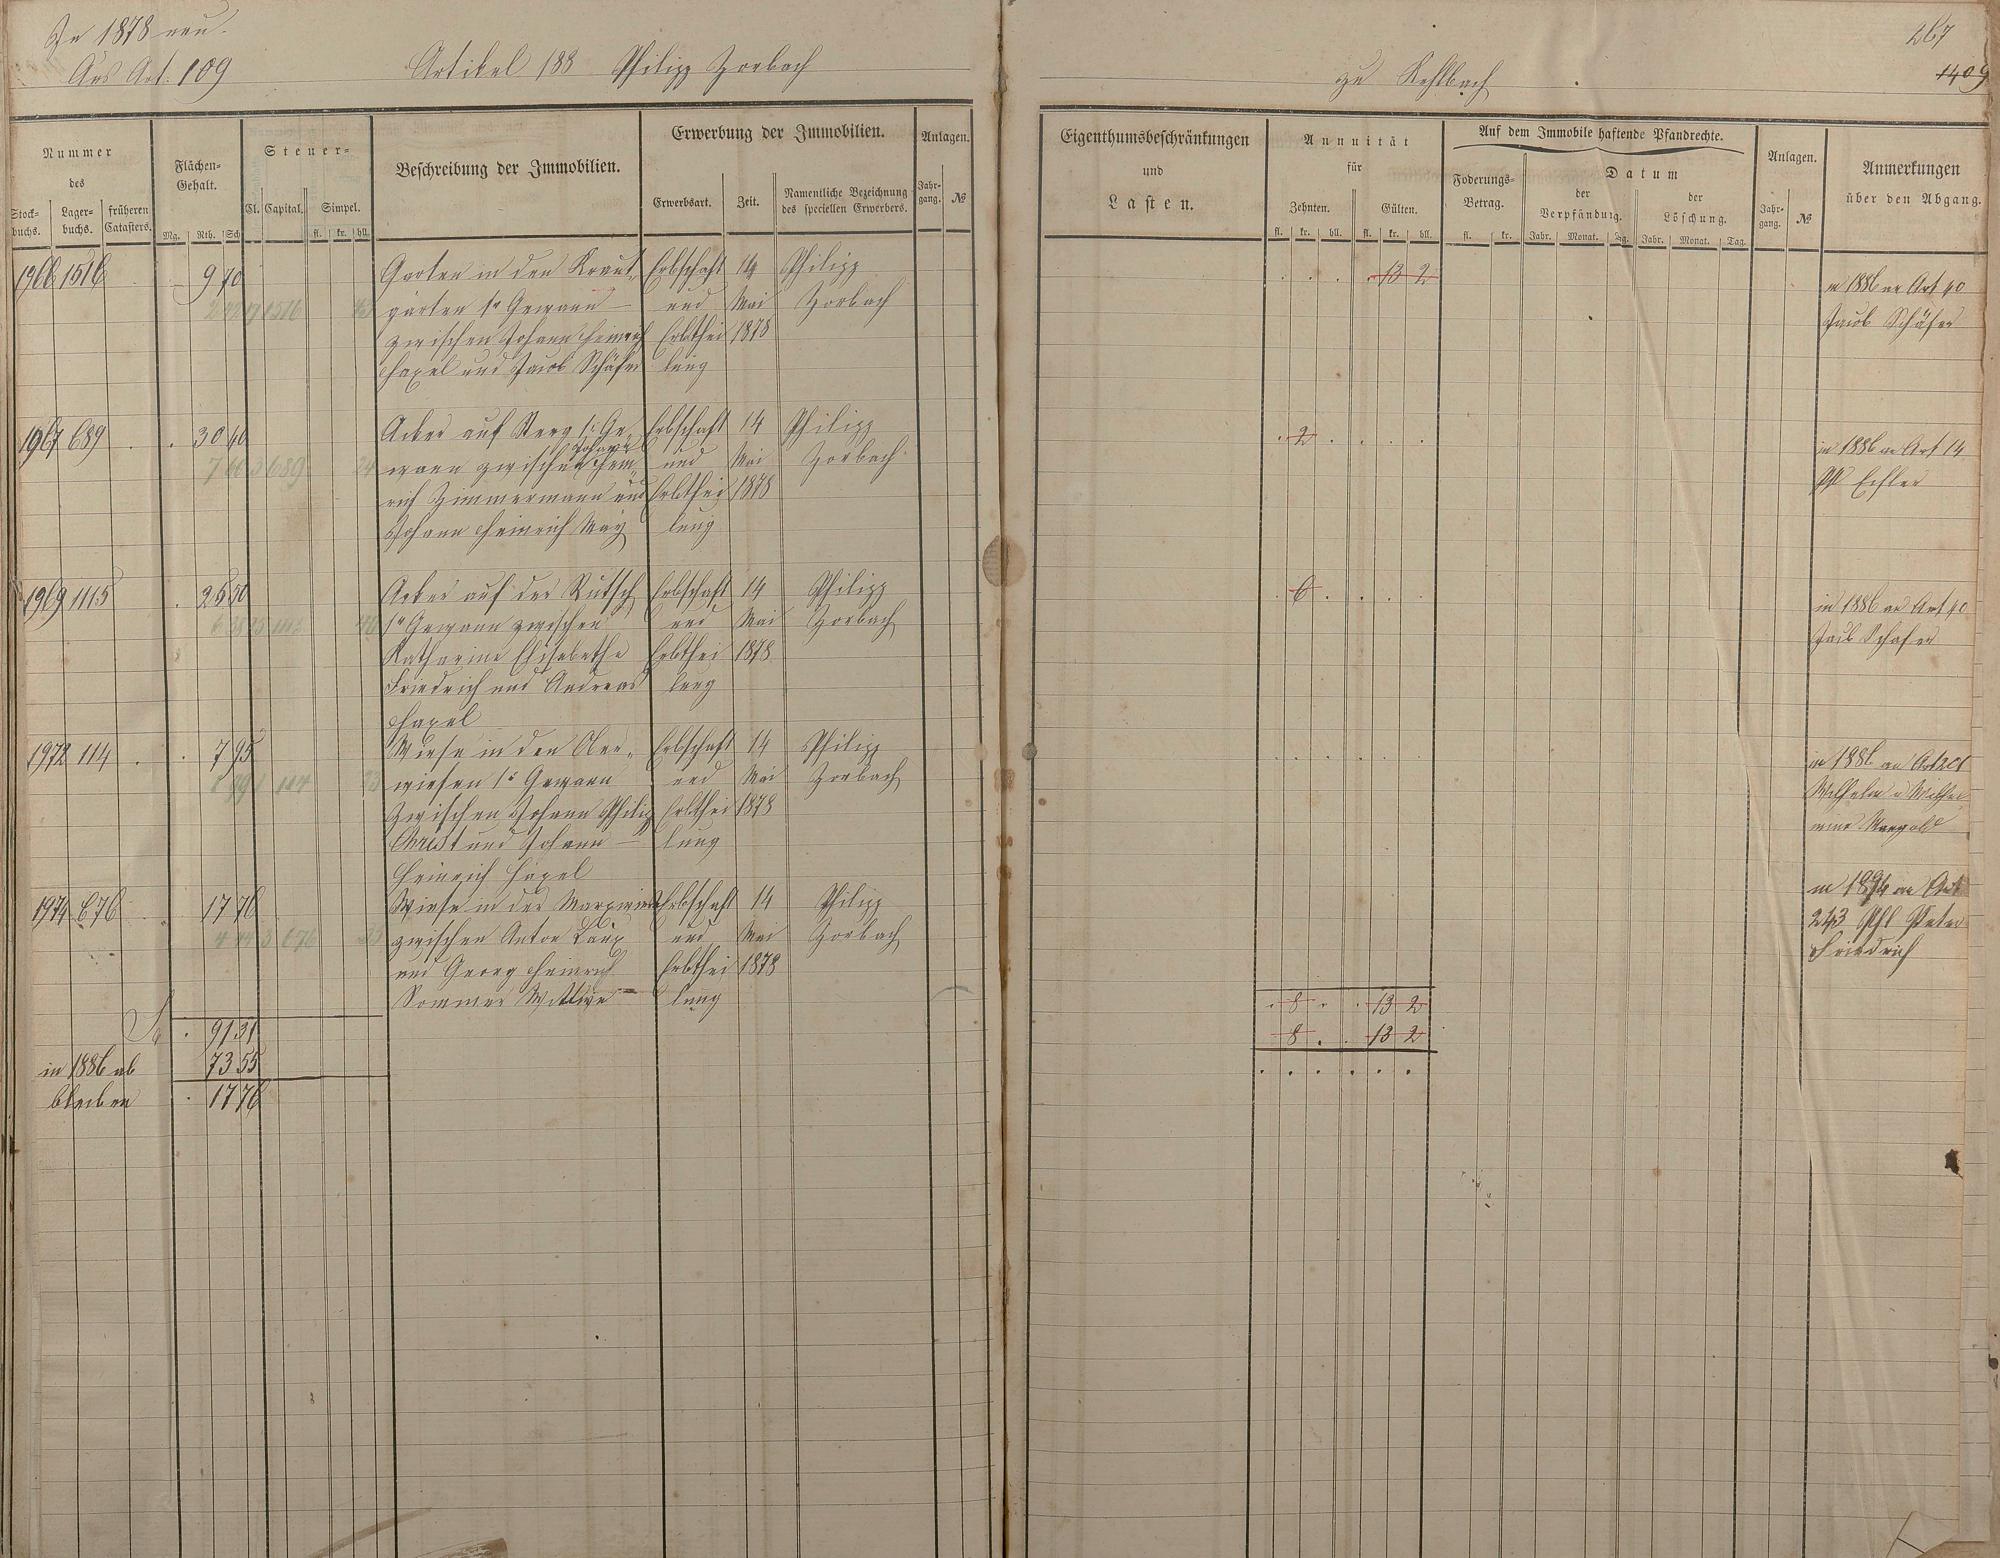 In 1878 neu.
Aus Art. 109
Artikel 188 Philipp Zorbach
zu Kehlbach
267
1409
Nummer
des
Stock-
buchs.
Lager-
buchs.
früheren
Catasters.
Flächen-
Gehalt.
Mg. Rth. Sch
Steuer-
Cl. Capital. Simpel.
fl. kr. hll.
Beschreibung der Immobilien.
Erwerbung der Immobilien.
Erwerbsart. Zeit. Namentliche Bezeichnung
des speciellen Erwerbers.
Anlagen.
Jahr-
gang. №
Eigenthumsbeschränkungen
und
Lasten.
Annuität
für
Zehnten. Gülten.
fl. kr. hll. fl. kr. hll.
Auf dem Immobile haftende Pfandrechte.
Foderungs-
Betrag.
fl. kr.
Datum
der
Verpfändung.
der
Löschung.
Jahr. Monat. Tg. Jahr. Monat. Tag.
Anlagen.
Jahr-
gang. №
Anmerkungen
über den Abgang.
1966 1516 9 70 Garten in den Kraut- Erbschaft 14 Philipp 13 2 in 1886 an Art 40
gärten 1r Gewann und Mai Zorbach Jacob Schäfer
zwischen Johann Heinrich Erbthei 1878
Haxel und Jacob Schäfer lung
1967 689 30 40 Acker auf Berg 1r Ge- Erbschaft 14 Philipp 2 in 1886 an Art 14
Johann
wann zwischen Hein- und Mai Zorbach
rich Zimmermann und Erbthei 1878
Johann Heinrich May lung
1969 1115 25 50 Acker auf der Rutsch Erbschaft 14 Philipp 6 in 1886 an Art 40
1r Gewann zwischen und Mai Zorbach Jacb Schäfer
Katharine Elisabethe Erbthei 1878
Friedrich und Andreas lung
Haxel
1972 114 7 95 Wiese in den Erbschaft 14 Philipp in 1886 an Art 201
wiesen 1r Gewann und Mai Zorbach Wilhelm u Wilhel-
zwischen Johann Philip Erbthei 1878 mine
Christ und Johann lung
Heinrich Haxel
1974 676 17 76 Wiese in der Erbschaft 14 Philipp in 1894 an Art
zwischen Anton Laux und Mai Zorbach 243 Phl Peter
und Georg Heinrich Erbthei 1878 Friedrich
Sommer Wittwe lung
8 13 2
91 31
8 13 2
in 1886 ab 73 55
bleiben 17 76